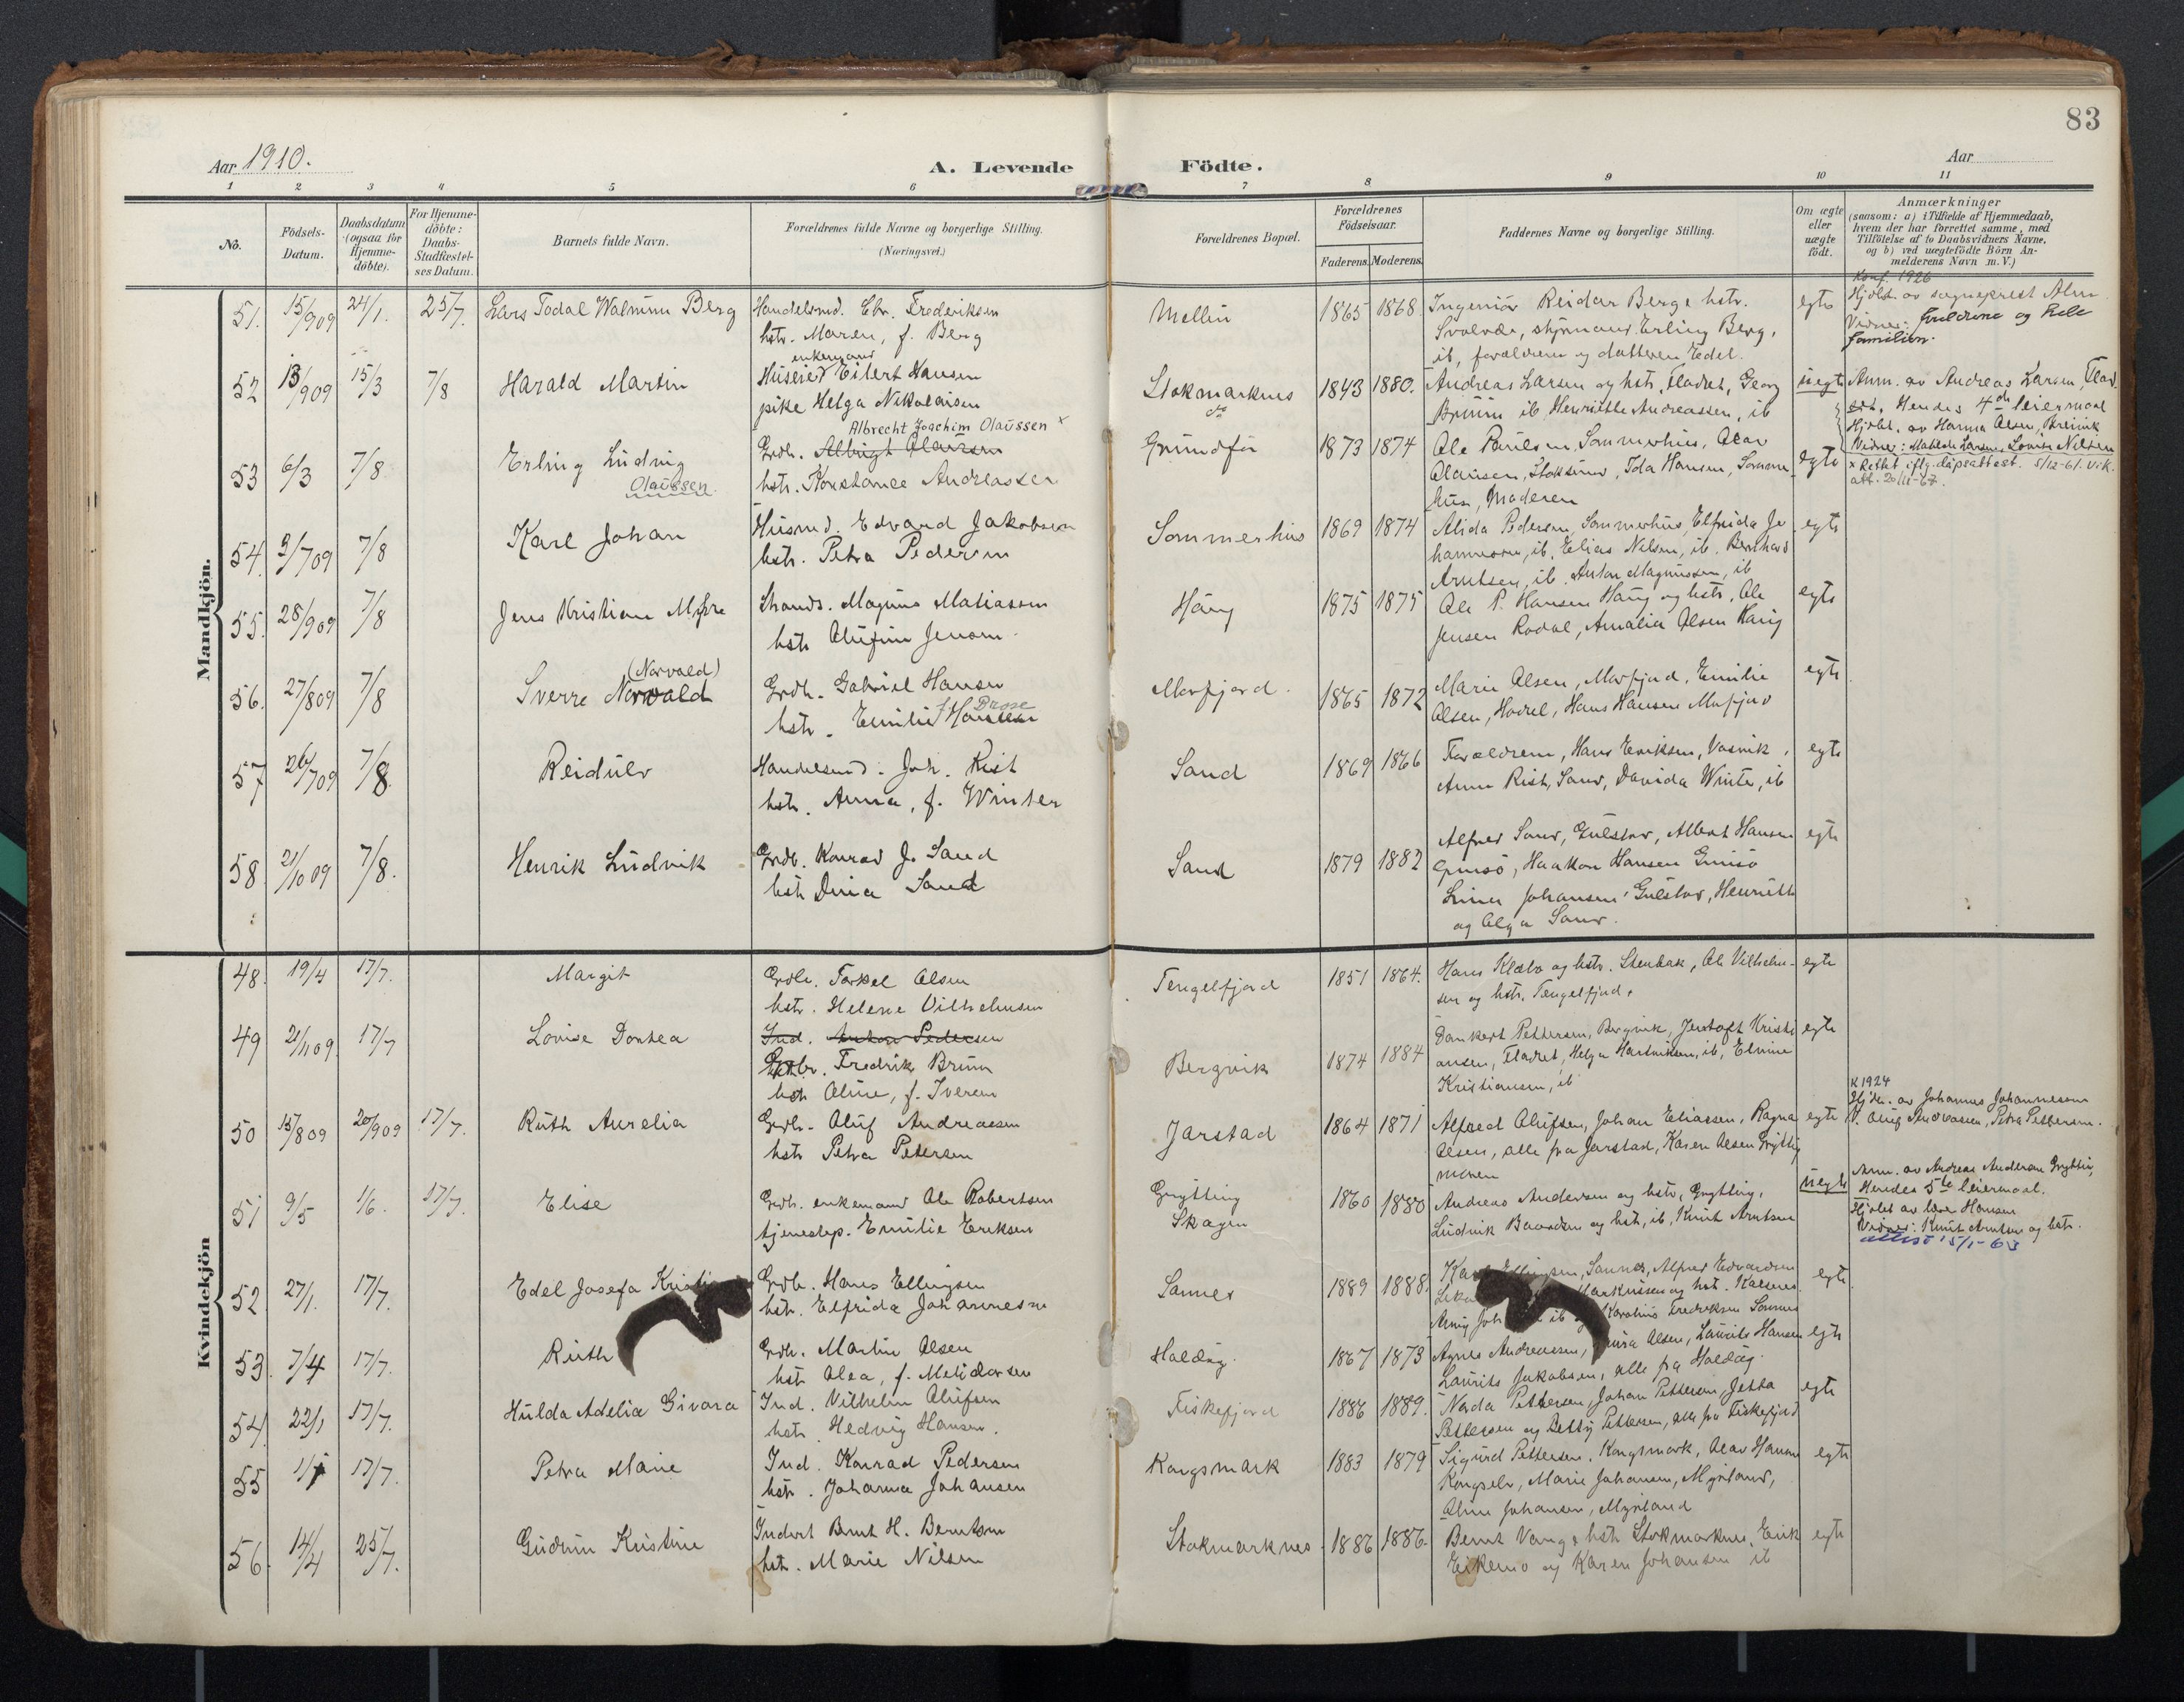 83
Aar 1910.
A. Levende Födte.
Aar
1 2 3 4 5 6 7 8 9 10 11
No.
Födsels-
Datum.
Daabsdatum
(ogsaa for
Hjemme-
döbte).
For Hjemme-
döbte:
Daabs-
Stadfæstel-
ses Datum.
Barnets fulde Navn.
Forældrenes fulde Navne og borgerlige Stilling.
(Næringsvei.)
Forældrenes Bopæl.
Forældrenes
Födselsaar.
Faderens. Moderens.
Faddernes Navne og borgerlige Stilling.
Om ægte
eller
uægte
födt.
Anmærkninger
(saasom: a) i Tilfælde af Hjemmedaab,
hvem der har forrettet samme, med
Tilföielse af to Daabsvidners Navne,
og b) ved uægtefödte Börn An-
melderens Navn m. V.)
Mandkjön.
51. 15/909 24/1. 25/7. Lars Todal Walnum Berg
Handelsmd. Chr. Frederiksen
hstr. Maren, f. Berg
Mellin 1865 1868.
Ingeniör Reidar Berge hstr.
Svolvær, styrmand Erling Berg,
ib, forældrene og datteren Edel.
egte
Konf. 1926
Hjdbt. av sogneprest Alm
Vidner: foreldrene og hele
familien.
52 13/909 15/3 7/8 Harald Martin
enkemand
Huseier Eilert Hansen
pike Helga Nikolaisen
Stokmarknes
do
1843 1880.
Andreas Larsen og hstr. Fladset, Georg
Bruun ib, Henriette Andreassen, ib
uegte
Anm. av Andreas Larsen, Flad-
set. Hendes 4de leiermaal
Hjdbt. av Hanna Olsen, Breivik
Vidner: Matilde Larsen, Lovise Nilsen
53 6/3 7/8 Erling Ludvig
Olaussen
Albrecht Joachim Olaussen x
Grdb. Albrigt Olaussen
hstr. Konstance Andreassen
Grundfør 1873 1874
Ole Paulsen, Sommerhus, Olav
Olausen, Stoksund, Ida Hansen, Sommer-
hus, Moderen
egte
x Rettet iflg. dåpsattest. 5/12-61. Vik.
att. 20/11-67.
54. 3/709 7/8 Karl Johan
Husmd. Edvard Jakobsen
hstr. Petra Pedersen
Sommerhus 1869 1874
Alida Pedersen, Sommerhus, Elfrida Jo
hannessen, ib, Elias Nilsen, ib. Bernhard
Arntsen, ib. Anton Magnussen, ib
egte
55. 28/909 7/8 Jens Kristian Myhre
Strands. Magnus Matiassen
hstr Olufine Jensen
Haug 1875 1875
Ole P. Hansen Haug og hstr, Ole
Jensen Rodal, Amalia Olsen Haug
egte
56. 27/809 7/8 (Norvald)
Sverre Norvald
Grdb. Gabriel Hansen
hstr. Emilie Hansen f. Brose
Morfjord. 1865 1872
Marie Olsen, Morfjord, Emilie
Olsen, Hovel, Hans Hansen Morfjord
egte
57 26/709 7/8. Reidulv
Handelsmd. Joh. Rist
hstr. Anna, f. Winter
Sand 1869 1866
Forældrene, Hans Eriksen, Vasvik,
Anna Rist, Sand, Davida Winter, ib
egte
58. 21/1009 7/8. Henrik Ludvik
Grdb. Konrad J. Sand
hstr Dina Sand
Sand 1879 1882
Alfred Sand, Gulstad, Albert Hansen
Gimsö, Haakon Hansen Gimsö
Lina Johansen Gulstad, Henriette
og Olga Sand.
egte
Kvindekjön
48. 19/4 17/7. Margit
Grdb. Torkel Olsen
hstr. Helene Vilhelmsen
Tengelfjord 1851 1864.
Hans Klæbo og hstr. Stenbak, Ole Vilhelm-
sen og hstr. Tengelfjord.
egte
49 21/1109. 17/7 Lovise Dortea
Ind. Anton Pedersen
Grdbr. Fredrik Bruun
hstr Oline, f. Iversen
Bergvik 1874 1884
Dankert Pettersen, Bergvik, Jentoft Kristi
ansen, Fladset, Helga Hartviksen, ib, Elvine
Kristiansen, ib
egte
50 15/809 20/909 17/7. Ruth Aurelia
Grdb. Oluf Andreassen
hstr Petra Petersen
Jarstad 1864 1871
Alfred Olufsen, Johan Eliassen, Ragna
Olsen, alle fra Jarstad, Karen Olsen Grytting
moren
egte
K 1924
Hjdbt. av Johannes Johannessen
V. Oluf Andreassen, Petra Pettersen.
51 9/5 1/6. 17/7. Elise
Grdb. enkemand Ole Robertsen
tjenestep. Emilie Eriksen
Grytting
Skagen
1860 1880
Andreas Andersen og hstr, Grytting,
Ludvik Baardsen og hstr, ib, Knut Arntsen
uegte
Anm. av Andreas Andersen Grytting,
Hendes 5te leiermaal.
Hjdbt av lærer Hansen
Vidner: Knut Arntsen og hstr.
attest 15/1-63
52. 27/1. 17/7. Edel Josefa
Grdb. Hans Ellingsen
hstr. Elfrida Johannesen
Sannes 1889 1888.
Ellingsen, Sannes, Alfred Edvardsen
Markussen og hst. Kalsnes
ib og Karolius Fredriksen Sannes
egte
53. 7/4 17/7. Ruth
Grdb. Martin Olsen
hstr Olea, f. Melidorsen
Haldøg. 1867 1873
Agnes Andreassen, Olsen, Laurits Hansen
Laurits Jakobsen, alle fra Haldøg.
egte
54. 22/1 17/7. Hulda Adelia Givara
Ind. Vilhelm Olufsen
hstr. Hedvig Hansen.
Fiskefjord 1886 1889.
Norda Pettersen, Johan Pettersen, Jetta
Pettersen og Betty Pettersen, alle fra Fiskefjord
egte
55 17/7. Petra Marie
Ind. Konrad Pedersen
hstr. Johanna Johansen
Kongsmark 1883 1879
Sigurd Pettersen, Kongsmark, Olav Hansen
Kongselv, Marie Johansen, Myrland,
Oline Johansen, Myrland
egte
56. 14/4 25/7. Gudrun Kristine
Inderst Bernt H. Berntsen
hstr. Marie Nilsen
Stokmarknes 1886 1886.
Bernt Vang & hstr Stokmarknes, Erik
Eikemo og Karen Johansen ib
egte